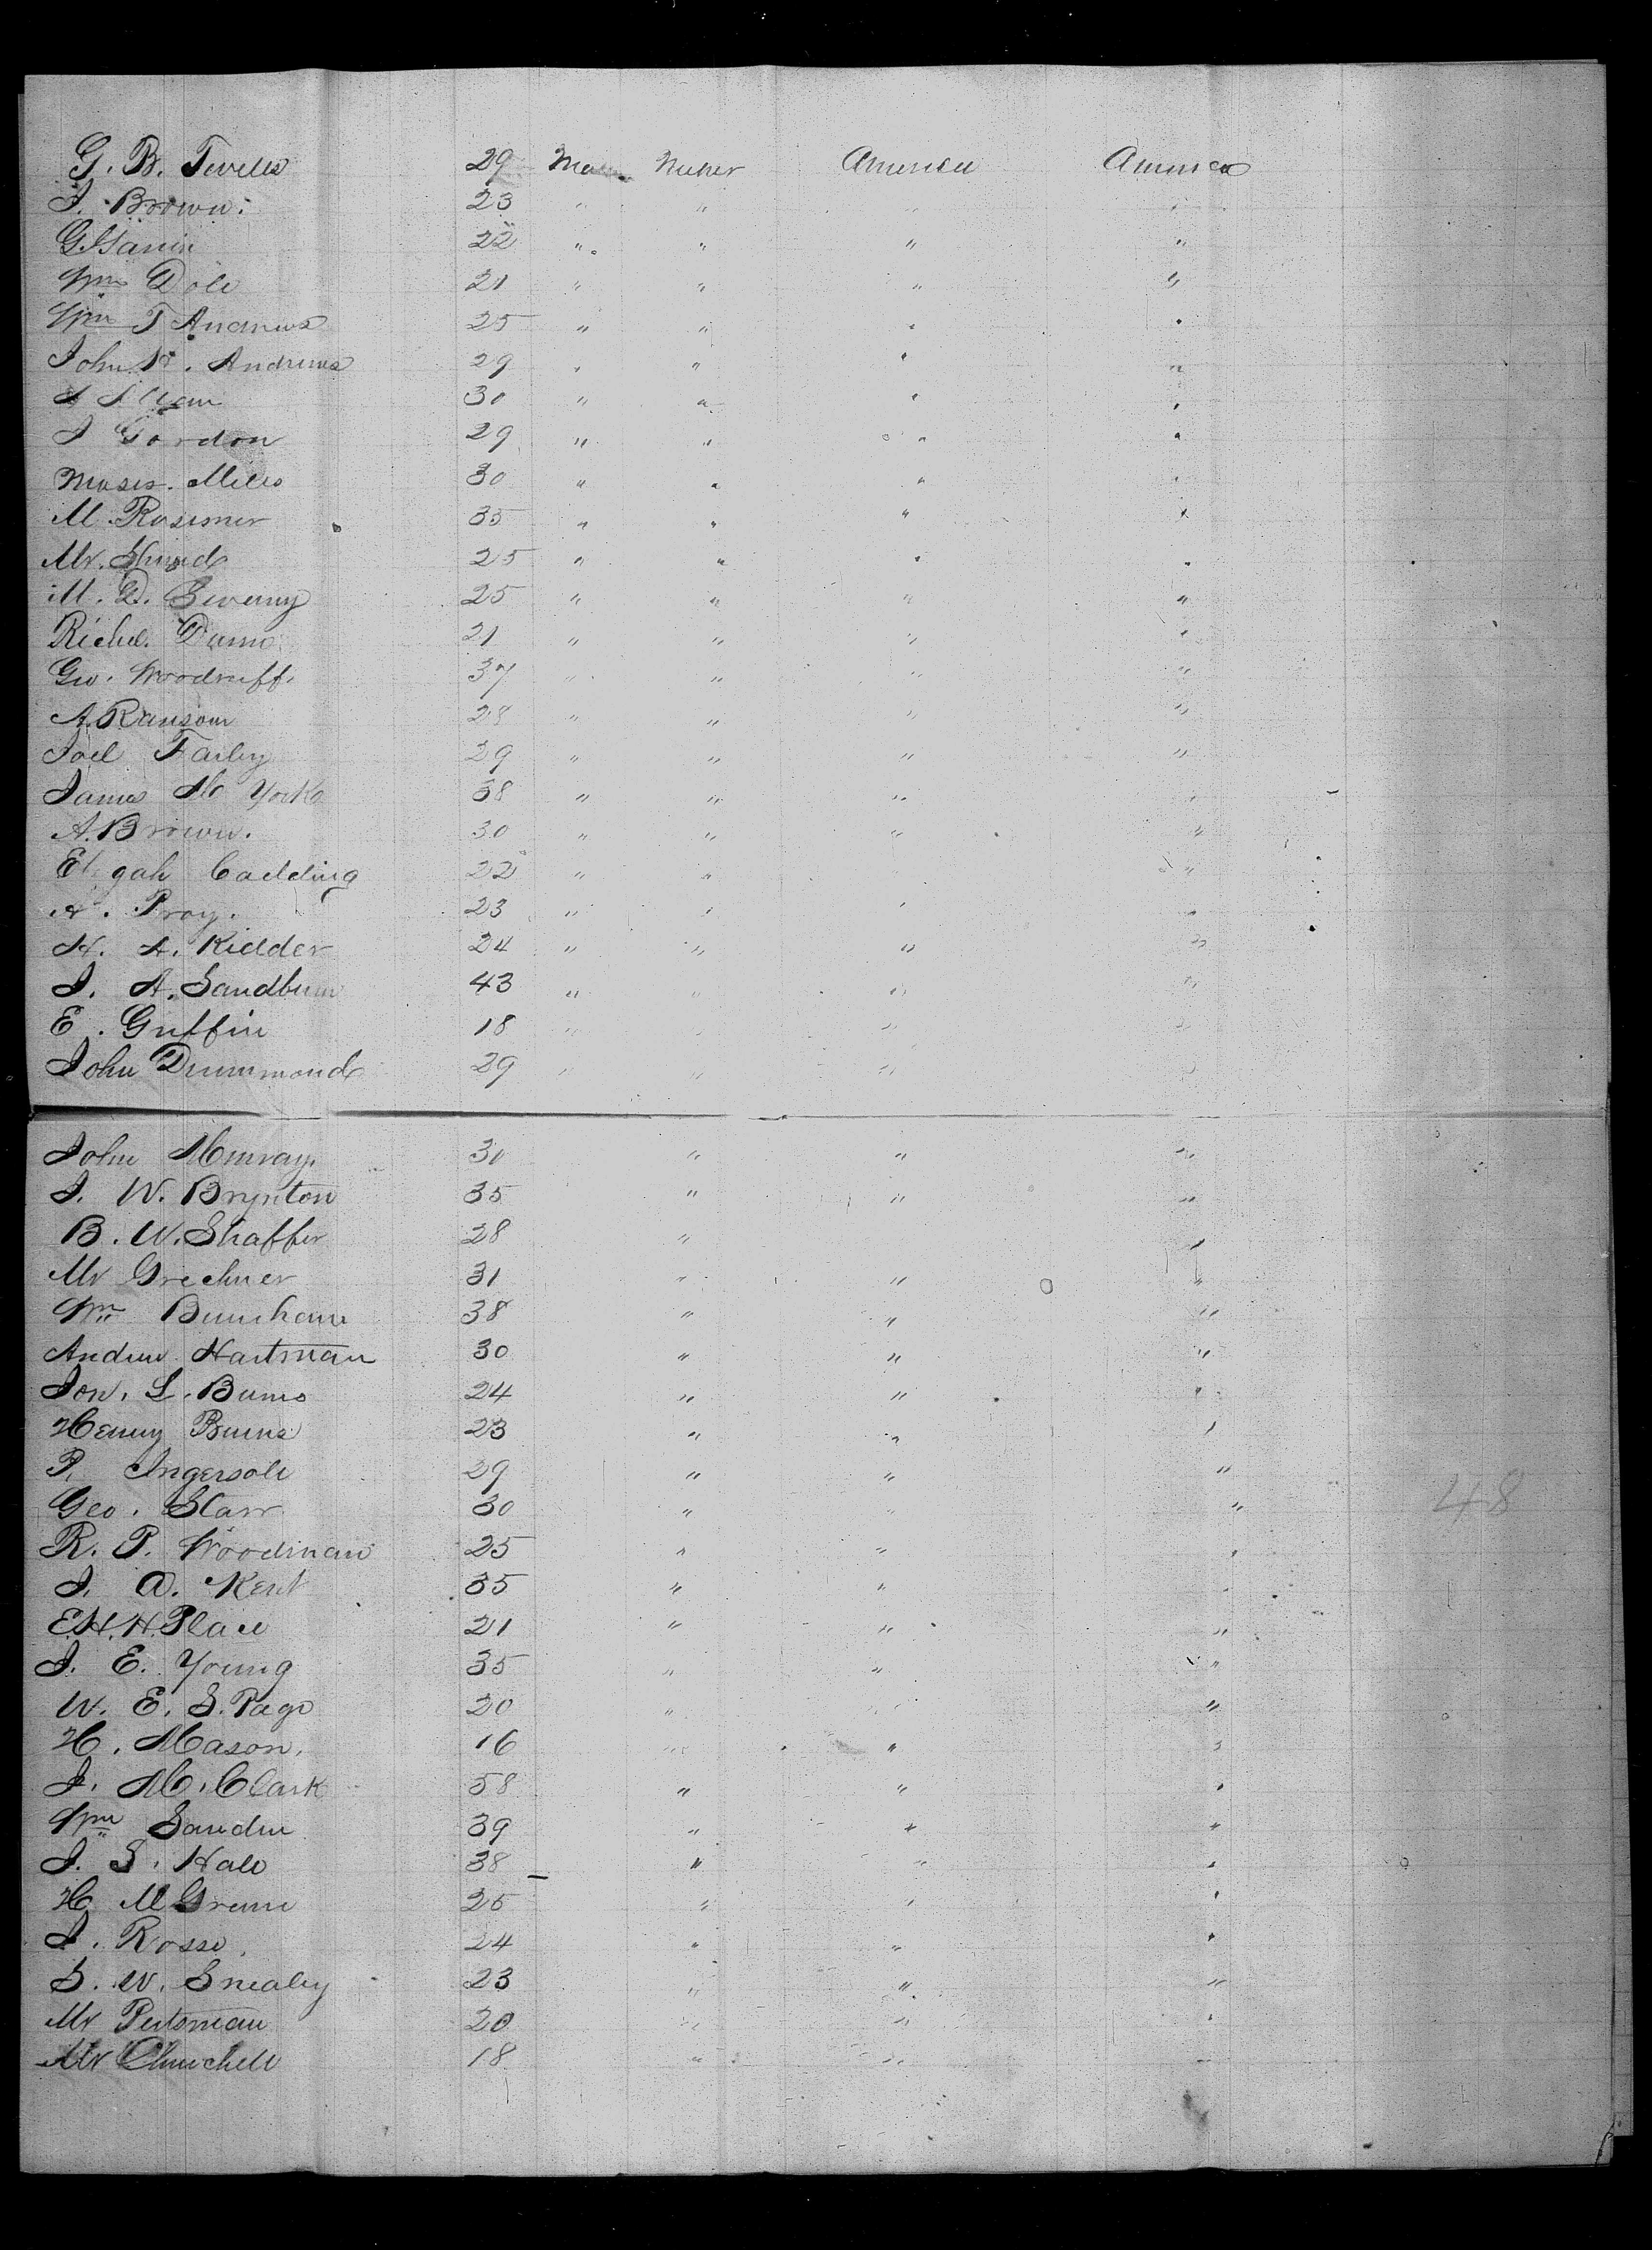 G. B. Tevells 29 Ma Miner America America
J. Brown. 23 " " " "
G. 22 " " " "
Wm Dole 21 " " " "
Wm T Andrews 25 " " " "
John H. Andrews 29 " " " "
30 " " " "
J Gordon 29 " " " "
Moses. Mills 30 " " " "
M. Rosemer 35 " " " "
Mr. 25 " " " "
M. D. Sweeny 25 " " " "
Richd. 21 " " " "
Geo. Woodruff. 37 " " " "
A. Ransom 28 " " " "
Joel Farley 29 " " " "
James M York 38 " " " "
A. Brown. 30 " " " "
Eligah Cadding 22 " " "
A. Pray. 23 " " " "
H. A. Kidder 24 " " " "
J. A. Sandburn 43 " " " "
E. Griffin 18 " " " "
John Drummond 29 " " " "
John Murray. 30 " " "
J. W. Brynton 35 " " "
B. W. Shaffer 28 " "
Mr Grechner 31 " " "
Wm Burnham 38 " " "
Andrew Hartman 30 " " "
Jon. L. Burns 24 " " "
Henry Burns 23 " " "
P. Ingersole 29 " " "
Geo. Starr 30 " " " 48
R. P. Woodman 25 " " "
J. A. Kent 35 " " "
E. H. H. Place 21 " " "
J. E. Young 35 " " "
W. E. S. Page 20 " " "
H. Mason. 16 " " "
J. M. Clark 58 " " "
Wm 39 " " "
J. S. Hale 38 " " "
H M 25 " " "
J. Rosse. 24 " " "
S. W. Snealey 23 " " "
Mr Putsman 20 " " "
Mr Churchell 18 " " "